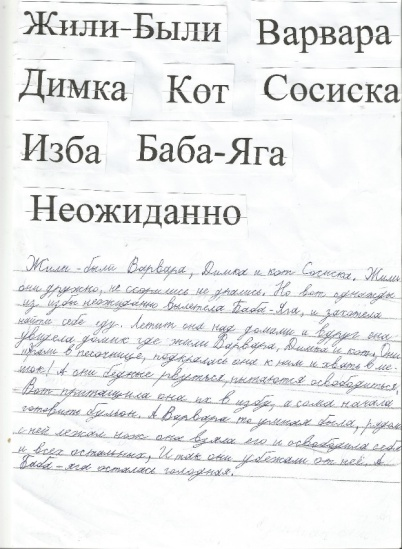 Жили-Были Варвара
Димка Кот Сосиска
Изба Баба-Яга
Неожиданно
Жили-были Варвара, Димка и кот Сосиска. Жили
они дружно, не ссорились не дрались. Но вот однажды
из избы неожиданно вылетела Баба-Яга, и захотела
найти себе еду. Летит она над домами и вдруг она
увидела домик где жили Варвара, Димка и кот. Они
играли в песочнице, подкралась она к ним и хвать в ме-
шок! А они бедные рвуться, пытаются освободиться.
Вот притащила она их в избу, а сама начала
готовить бульон. А Варвара то умная была, рядом
с ней лежал нож она взяла его и освободила себя
и всех остальных. И так они убежали от неё. А
Баба-яга осталась голодная.